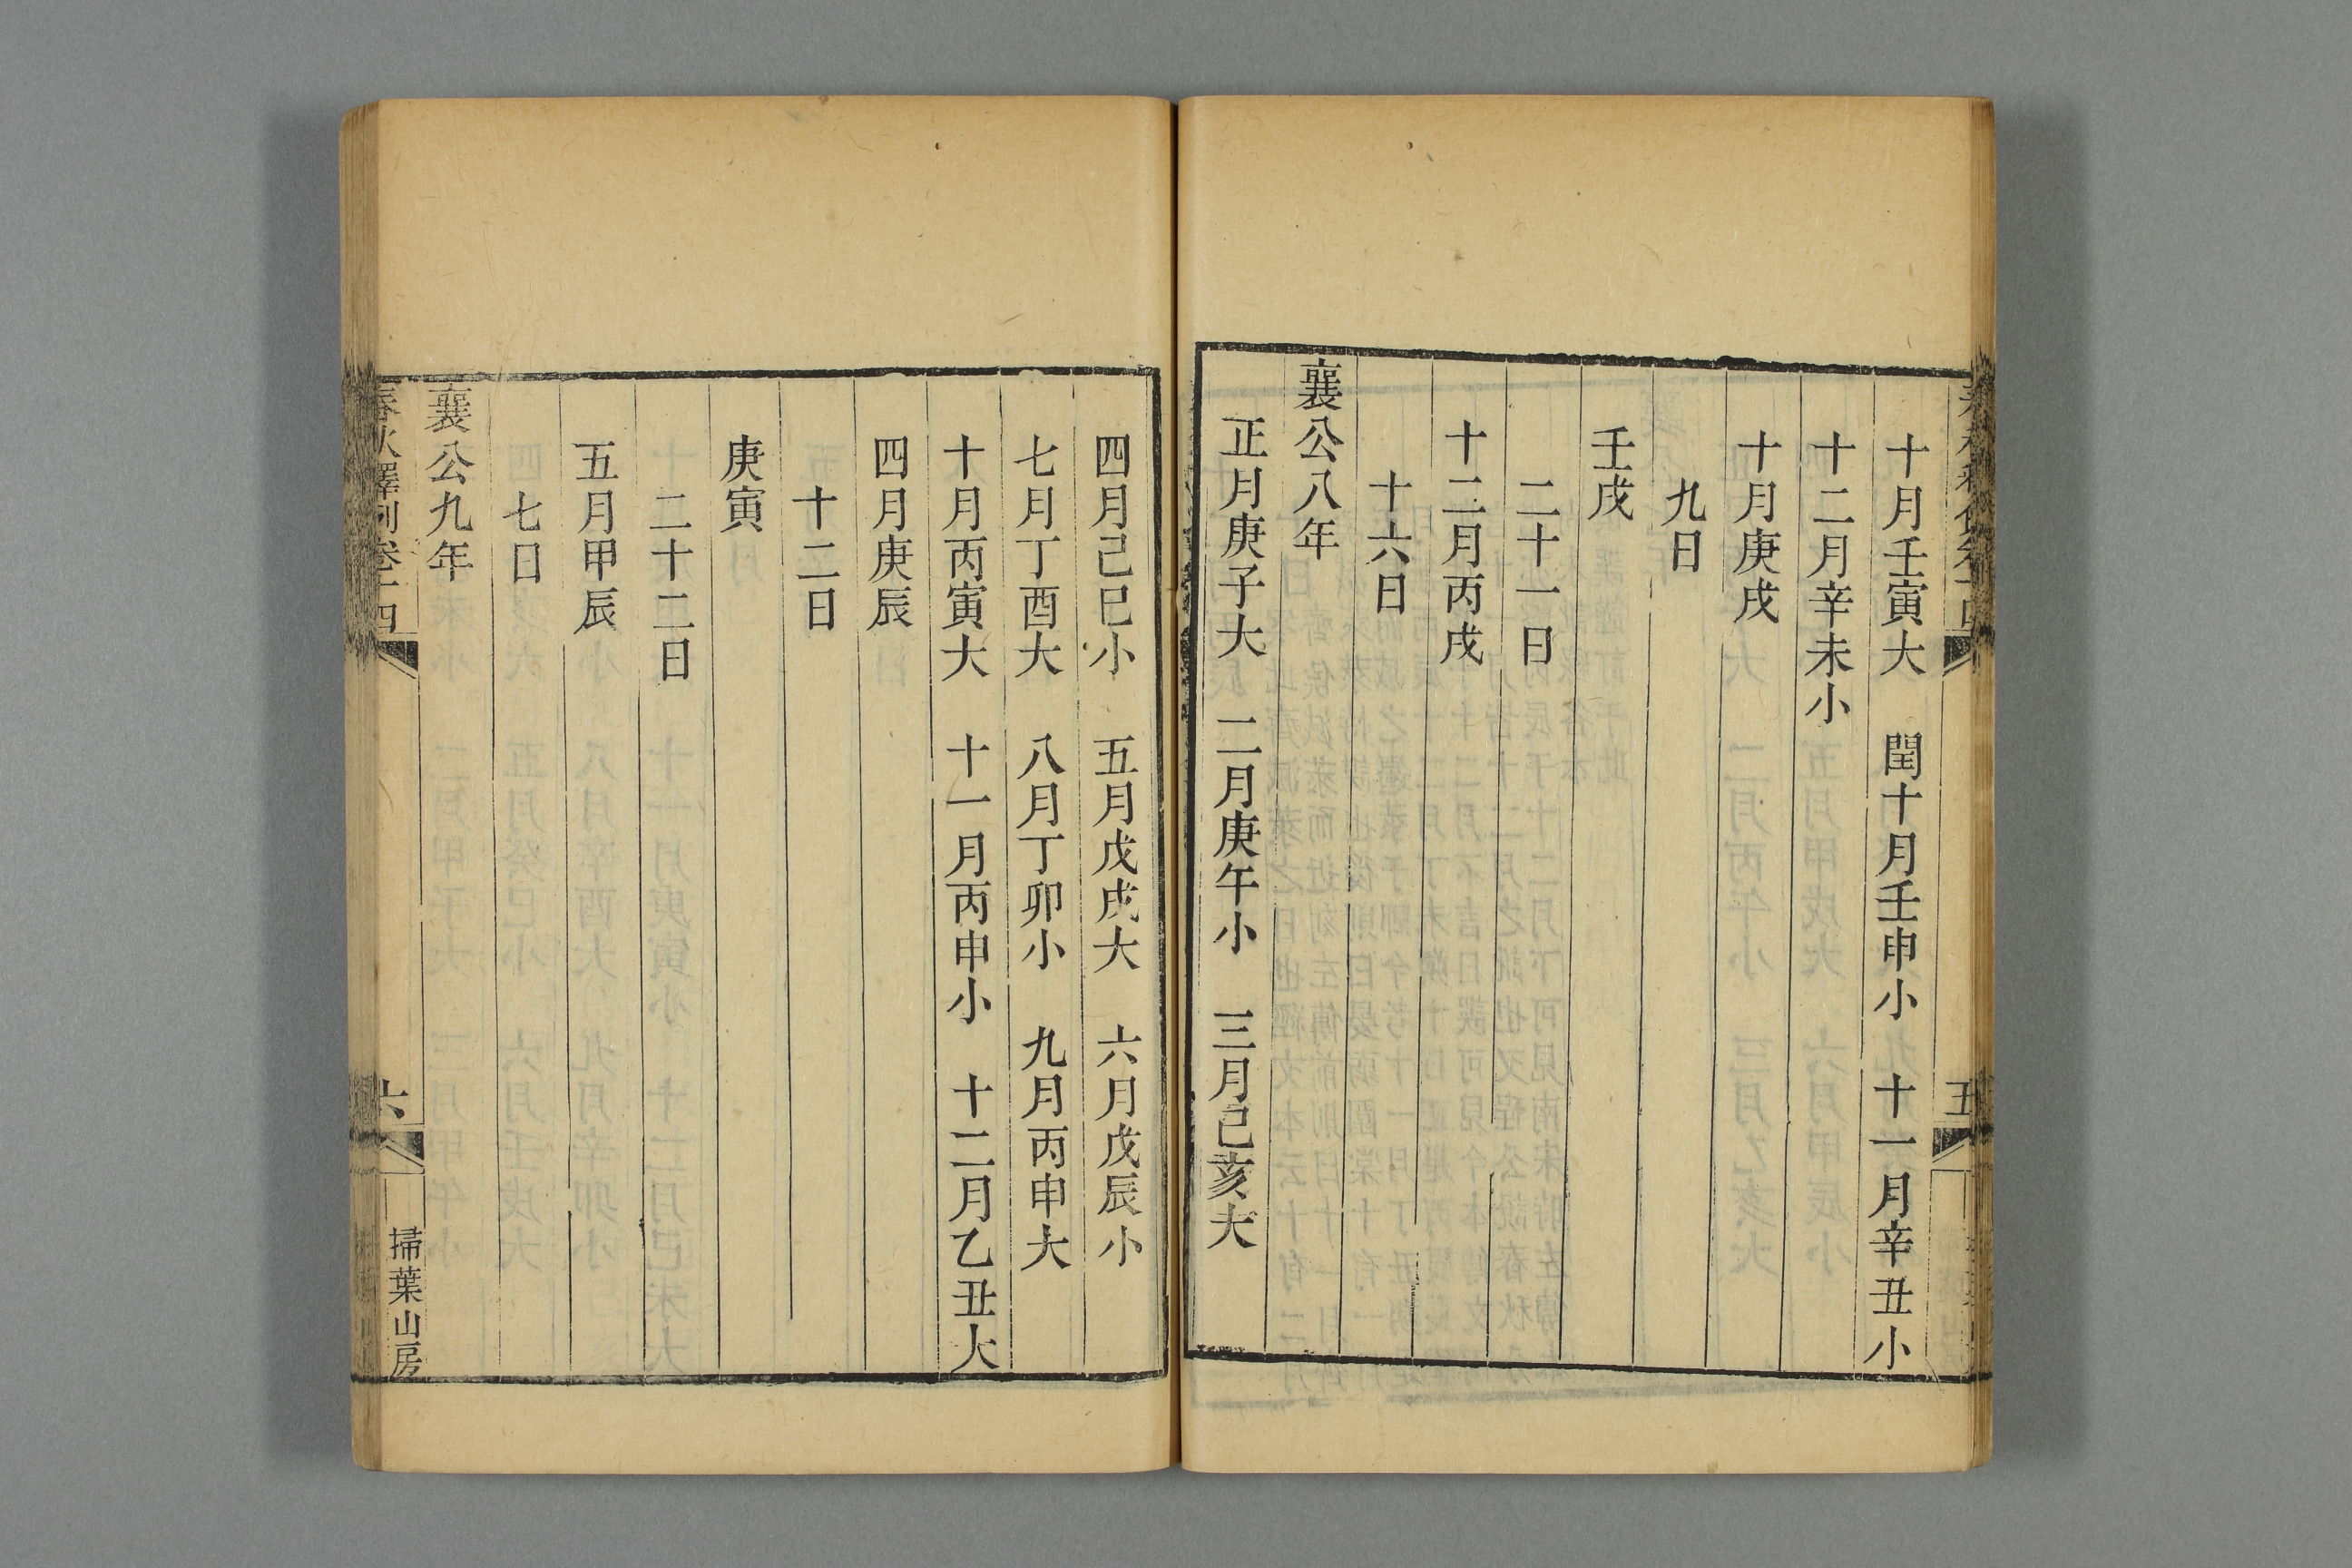 十月壬寅大　閏十月壬申小　十一月辛丑小
十二月辛未小
十月庚戌
九日
壬戌
二十一日
十二月丙戌
十六日
襄公八年
正月庚子大　二月庚午小　三月己亥大
五
四月己巳小　五月戊戌大　六月戊辰小
七月丁酉大　八月丁卯小　九月丙申大
十月丙寅大　十一月丙申小　十二月乙丑大
四月庚辰
十二日
庚寅
二十二日
五月甲辰
七日
襄公九年
春秋釋例卷十四
六
掃葉山房